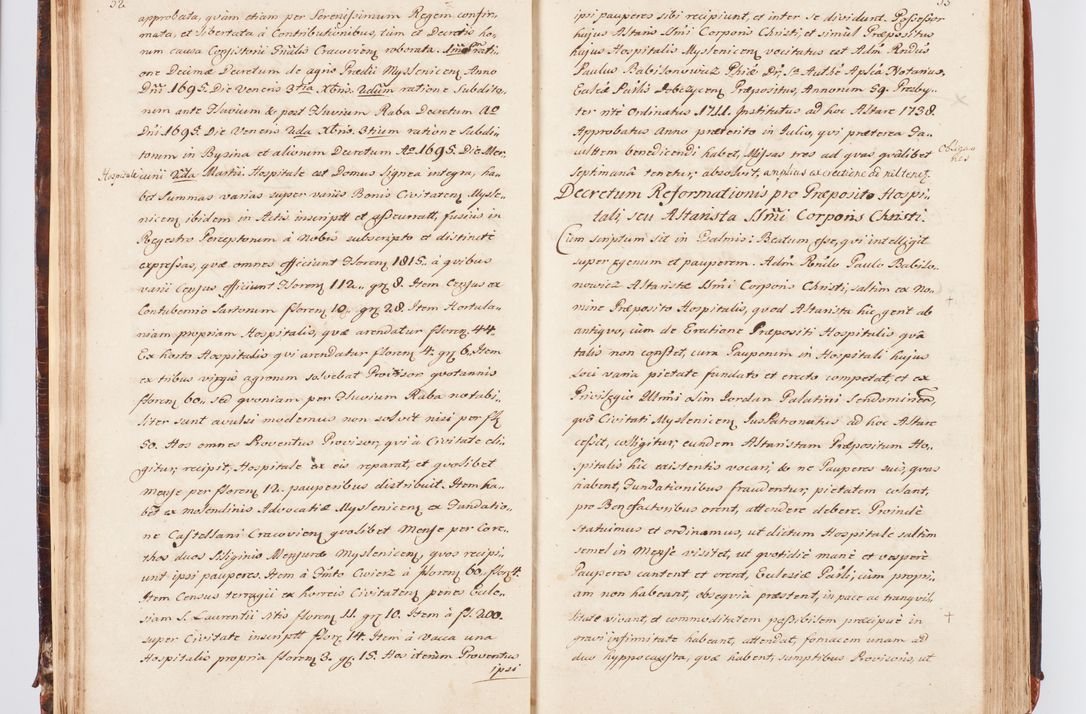 52.
approbata, quàm etiam per Serenissimum Regem confir,,
mata, et libertata à Contributionibus, tùm et Decretis ho,,
rum causa Consistorii Gñalis Cracovien roborata.
one Decimæ Decretum de agris Prædii Myslenicen Anno
Dñi 1695. Die Veneris 3tia Xbris. 2dum ratione Subdito,,
rum ante Fluvium & post Fluvium Raba Decretum Aº
Dni 1695. Die Veneris 2da Xbris 3tium ratione Subdi,,
torum in Bysina et aliorum Decretum Aº 1695. Die Mer,,
Hospitale
curii Martii. Hospitale est Domus Lignea integra, ha,,
bet Summas varias super variis Bonis Civitatem Mysle,,
nicen ibidem in Actis inscriptt et assecuratt, fusius in
Regestro Perceptorum à Nobis subscripto et distinctè
expressas, quæ omnes efficiunt Floren 1815. à quibus
varii Census efficiunt Floren 112. gr 8. Item Census ex
Contubernio Sartorum floren 10. gr 28. Item Hortula,,
niam propriam Hospitalis, quæ arendatur floren 44.
Ex horto Hospitalis qvi arendatur floren 4. gr 6. Item
ex tribus virgis agrorum solvebat Provisor quotannis
floren 60. sed quoniam per Fluvium Raba notabi,,
liter sunt avulsi modernus non solvit nisi per fl
50. Hos omnes Proventus Provisor, qvi à Civitate eli,,
gitur, recipit, Hospitale ex eis reparat, et quolibet
mense per floren 12. pauperibus distribuit. Item ha,,
bet ex molendinis Advocatiæ Myslenicen ex Fundatio,,
ne Castellani Cracovien quolibet Mense per Core,,
thos duos Siliginis Mensuræ Myslenicen, quos recipi,,
unt ipsi pauperes. Item à Cwierz à floren 60. floren 4.
Item Census terragii ex horreis Civitaten penes Eccle,,
siam S. Laurentii sitis floren 11. gr 10. Item à fl. 200.
super Civitate inscriptt floren 14. Item à vacca una
Hospitalis propria floren 3. gr 15. Hos iterum Proventus
ipsi
53
ipsi pauperes sibi recipiunt, et inter se dividunt. Possessor
hujus Altaris Ssmi Corporis Christi, et simul Præpositus
hujus Hospitalis Myslenicen vocitatus est Adm Rndus
Paulus Babisonowicz Phiæ Dr. Sa. Authe Aplca Notarius,
Eccleæ Parlis Dobczycen Præpositus, Annorum 59. Presby,,
ter rite Ordinatus 1711. Institutus ad hoc Altare 1738.
Approbatus anno præterito in Iulio, qvi præterea Fa,,
cultem benedicendi habet, Missas tres ad quas qualibet
Obligao
nes
Septimana tenetur, absolvit, amplius ex erectione
Decretum Reformationis pro Præposito Hospi,,
tali seu Altarista Ssmi Corporis Christi.
Cum scriptum sit in Psalmis: Beatum esse, qvi intelligit
super egenum et pauperem. Adm Rndo Paulo Babiso,,
nowicz Altaristæ Ssmi Corporis Christi, saltim ex No,,
mine Præposito Hospitalis, quod Altarista hic gerit ab
antiquo, cùm de Erectione Præpositi Hospitalis quà
talis non constet, cura Pauperum in Hospitali hujus
Loci varia pietate fundato et erecto competat, et ex
Privilegio Illmi olim Iordan Palatini Sendomirien,
quô Civitati Myslenicen IusPatronatus ad hoc Altare
cessit, colligitur, eundem Altaristam Præpositum Ho,,
spitalis hic existentis vocari, & ne Pauperes suis, quas
habent, Fundationibus fraudentur, pietatem colant,
pro Benefactoribus orent, attendere debere. Proindè
statuimus et ordinamus, ut dictum Hospitale saltim
semel in Mense visitet, ut quotidiè manè et vesperè
Pauperes cantent et orent, Ecclesiæ Parlis, cùm propri,,
am non habeant, obsequia præstent, in pace ac tranqvil,,
litate vivant, et commoditatem possibilem præcipuè in
gravi infirmitate habeant, attendat, fornacem unam ad
duo hyppocausta, quæ habent, sumptibus Provisoris, ut